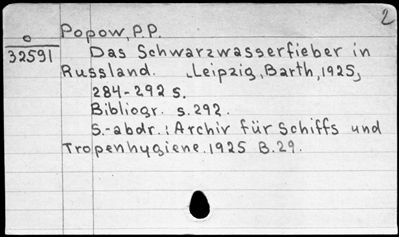 2
Popow, P.P.
o
32591
Das Schwarzwasserfieber in
Russland. Leipzig, Barth, 1925,
284-292 s.
Bibliogr. s. 292.
S.-abdr.: Archiv für Schiffs und
Tropenhygiene. 1925 B. 29.